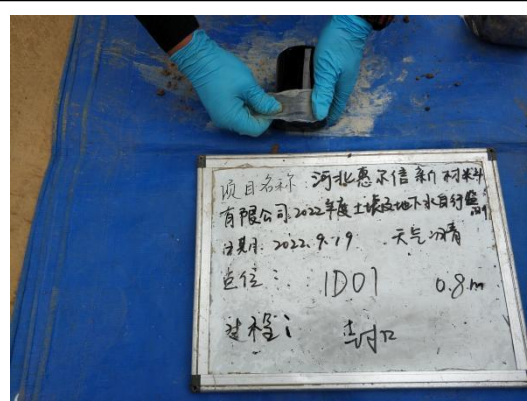 项目名称：河北惠尔信新材料
有限公司2022年度土壤及地下水自行监测
日期：2022.9.19 天气：晴
点位：1D01 0.8m
过程：封口